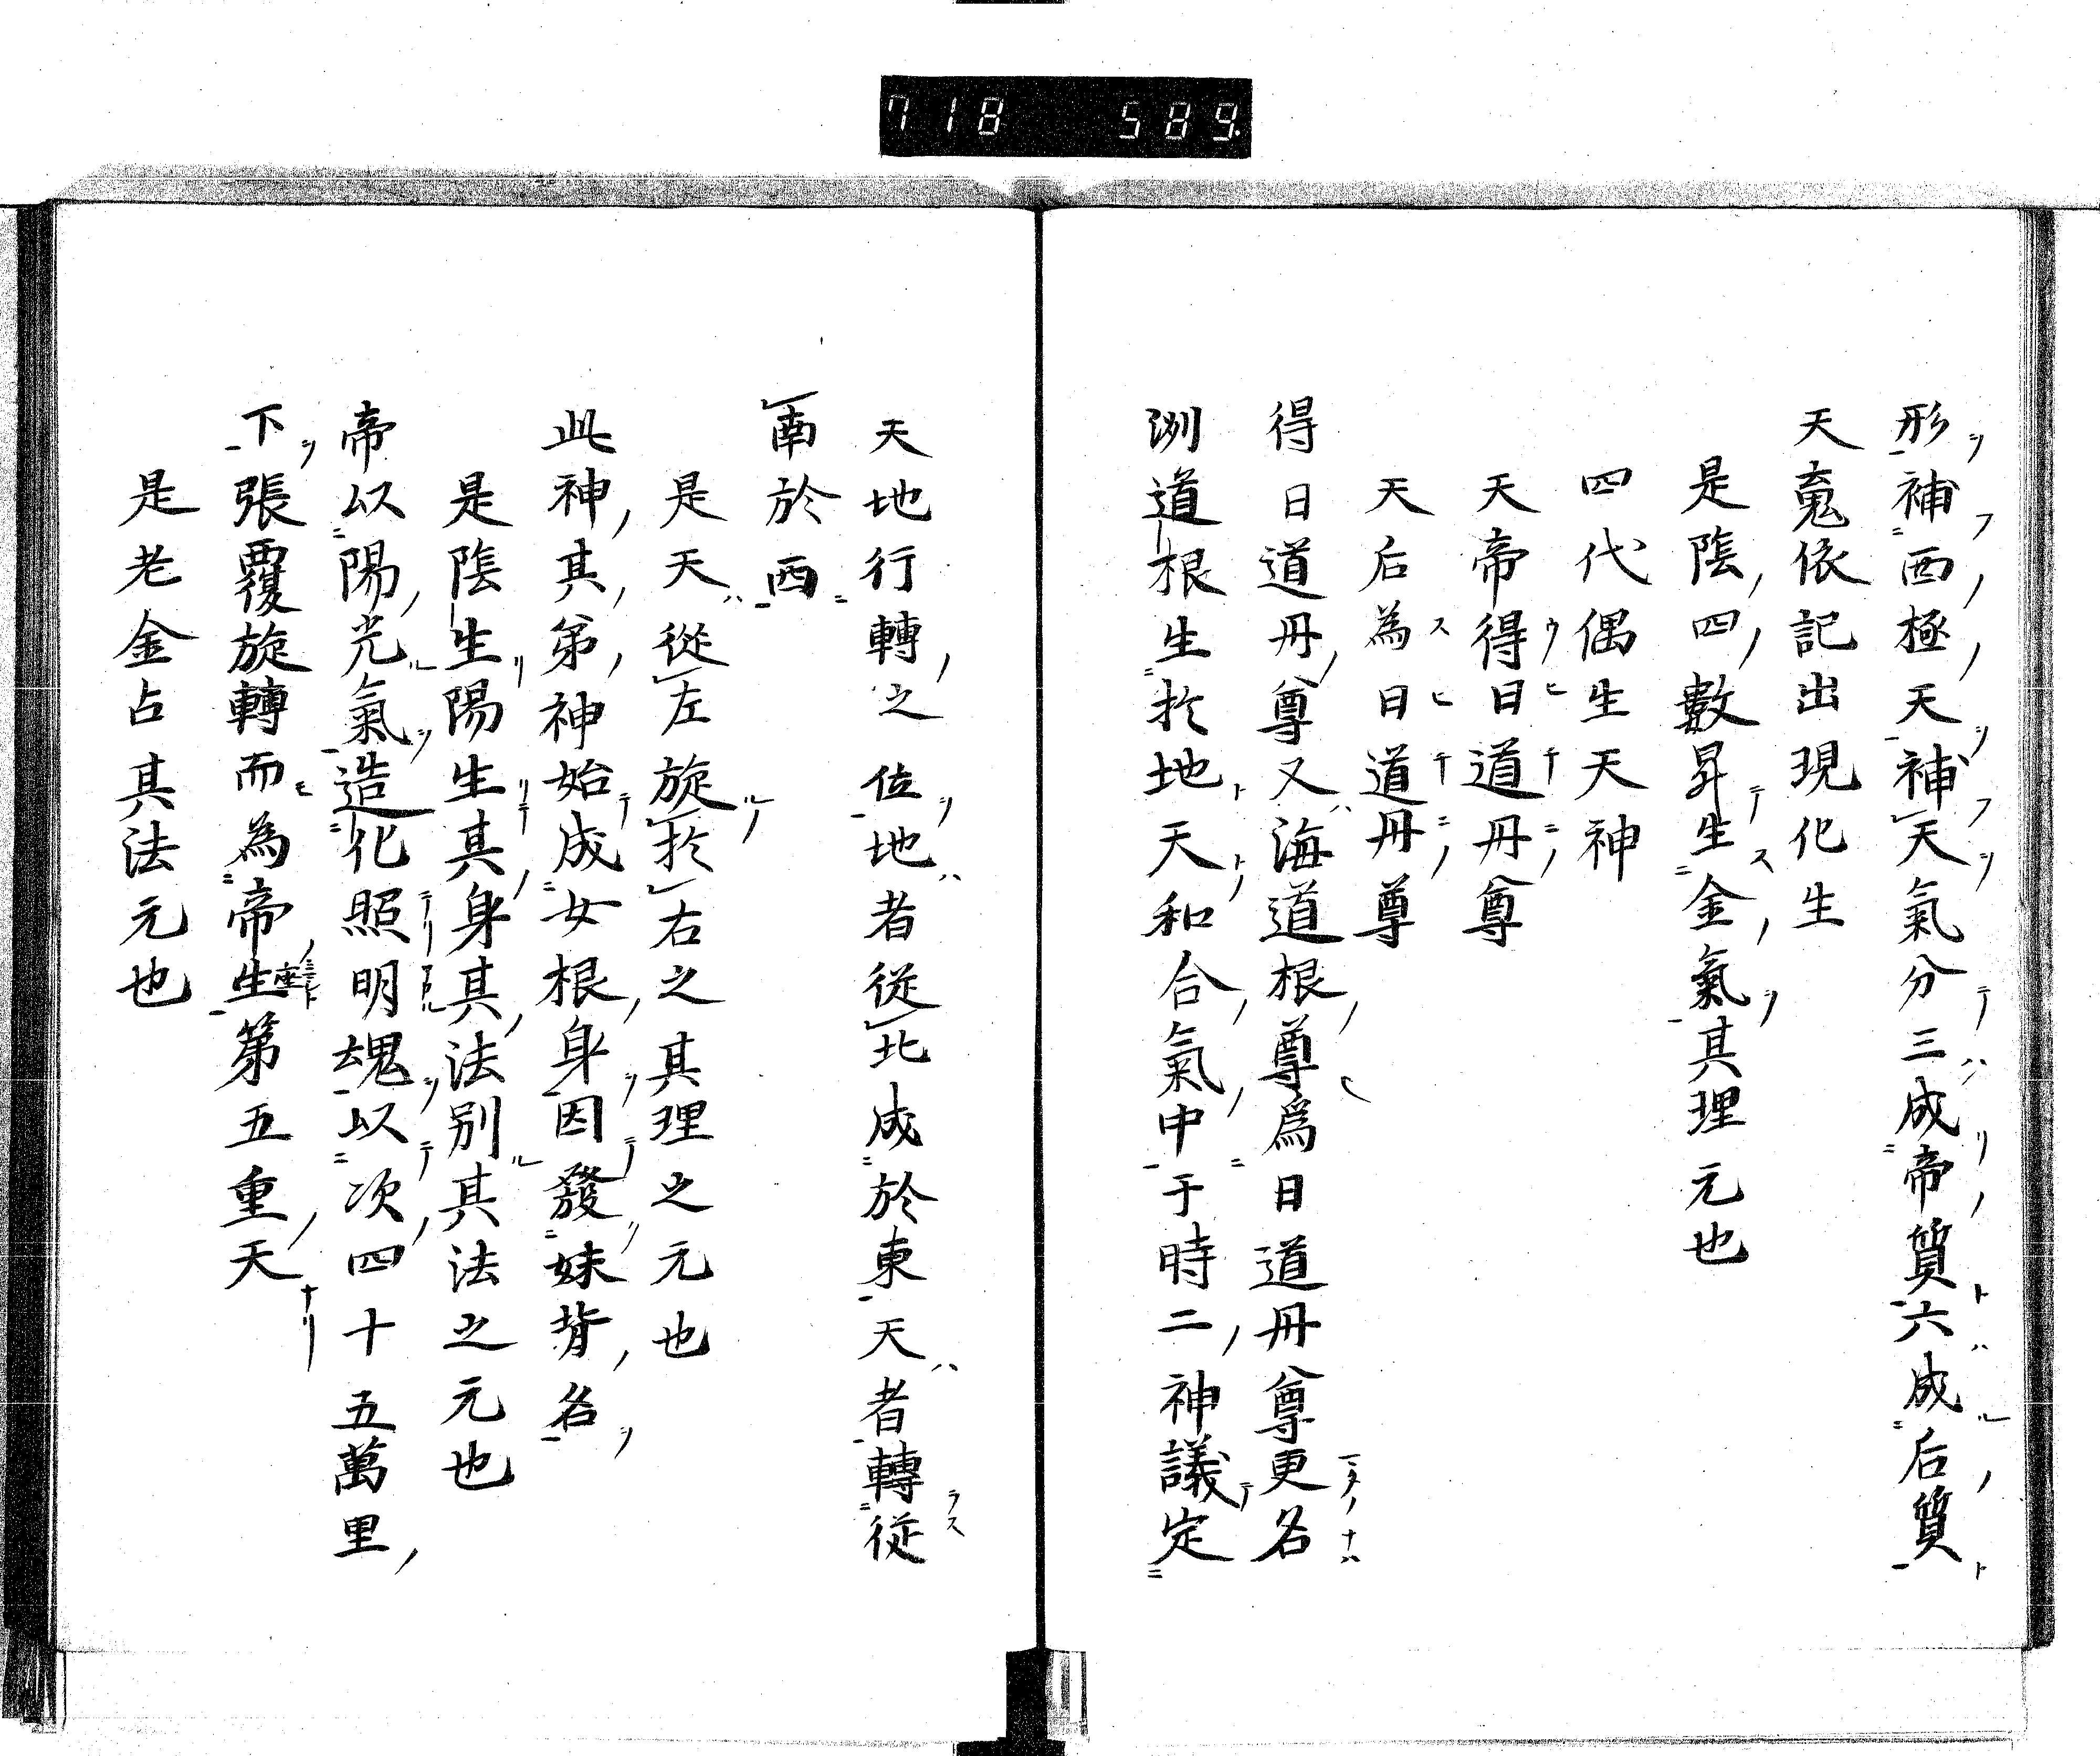 718 589
形補西極天補天氣分三成帝質六成后質
天嵬依記出現化生
是陰四數昇生金氣其理元也
四代偶生天神
天帝得日道丹尊
天后為日道丹尊
得日道丹尊又海道根尊爲日道丹尊更名
渕道根生於地天和合氣中于時二神議定
天地行轉之位地者從北成於東天者轉從
南於西
是天從左旋於右之其理之元也
此神其弟神始成女根身因發妹背名
是陰生陽生其身其法別其法之元也
帝以陽光氣造化照明魂以次四十五萬里
下張覆旋轉而為帝生第五重天
是老金占其法元也